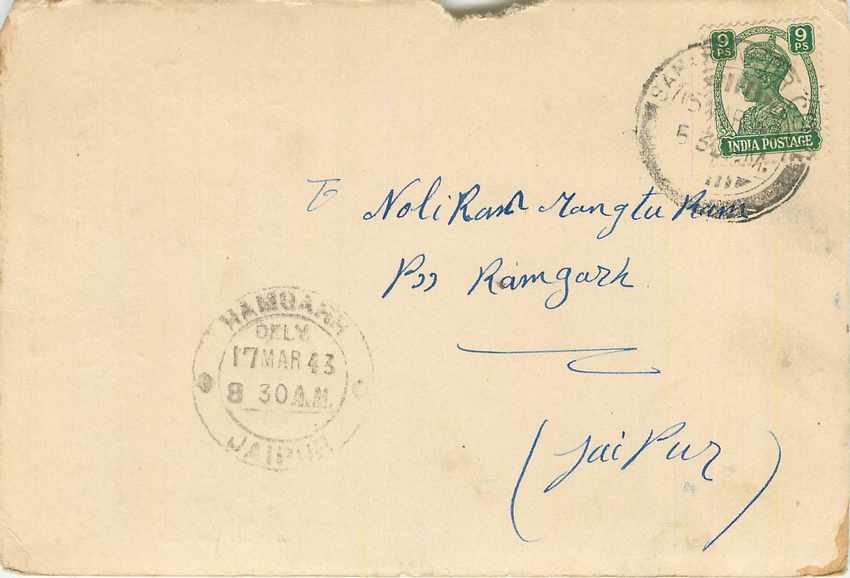 9 PS
9 PS
INDIA POSTAGE
5 30 P.M.
To
Noli Ram Mangtu Ram
Ramgarh
(Jaipur)
RAMGARH
DELY.
17 MAR 43
8 30 A.M.
JAIPUR